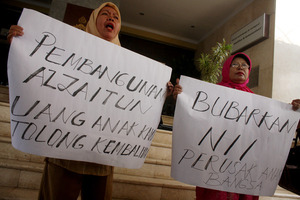 PEMBANGUNAN
ALZAITUN
UANG ANAK KAMI
TOLONG KEMBALIKAN
BUBARKAN
NII
PERUSAK ANAK
BANGSA